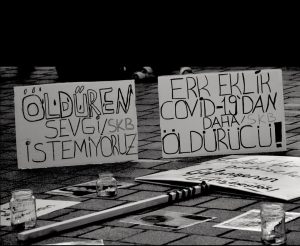 ÖLDÜREN
SEVGİ/SKB
İSTEMİYORUZ
ERK EKLİK
COVID-19'DAN
DAHA/SKB
ÖLDÜRÜCÜ!